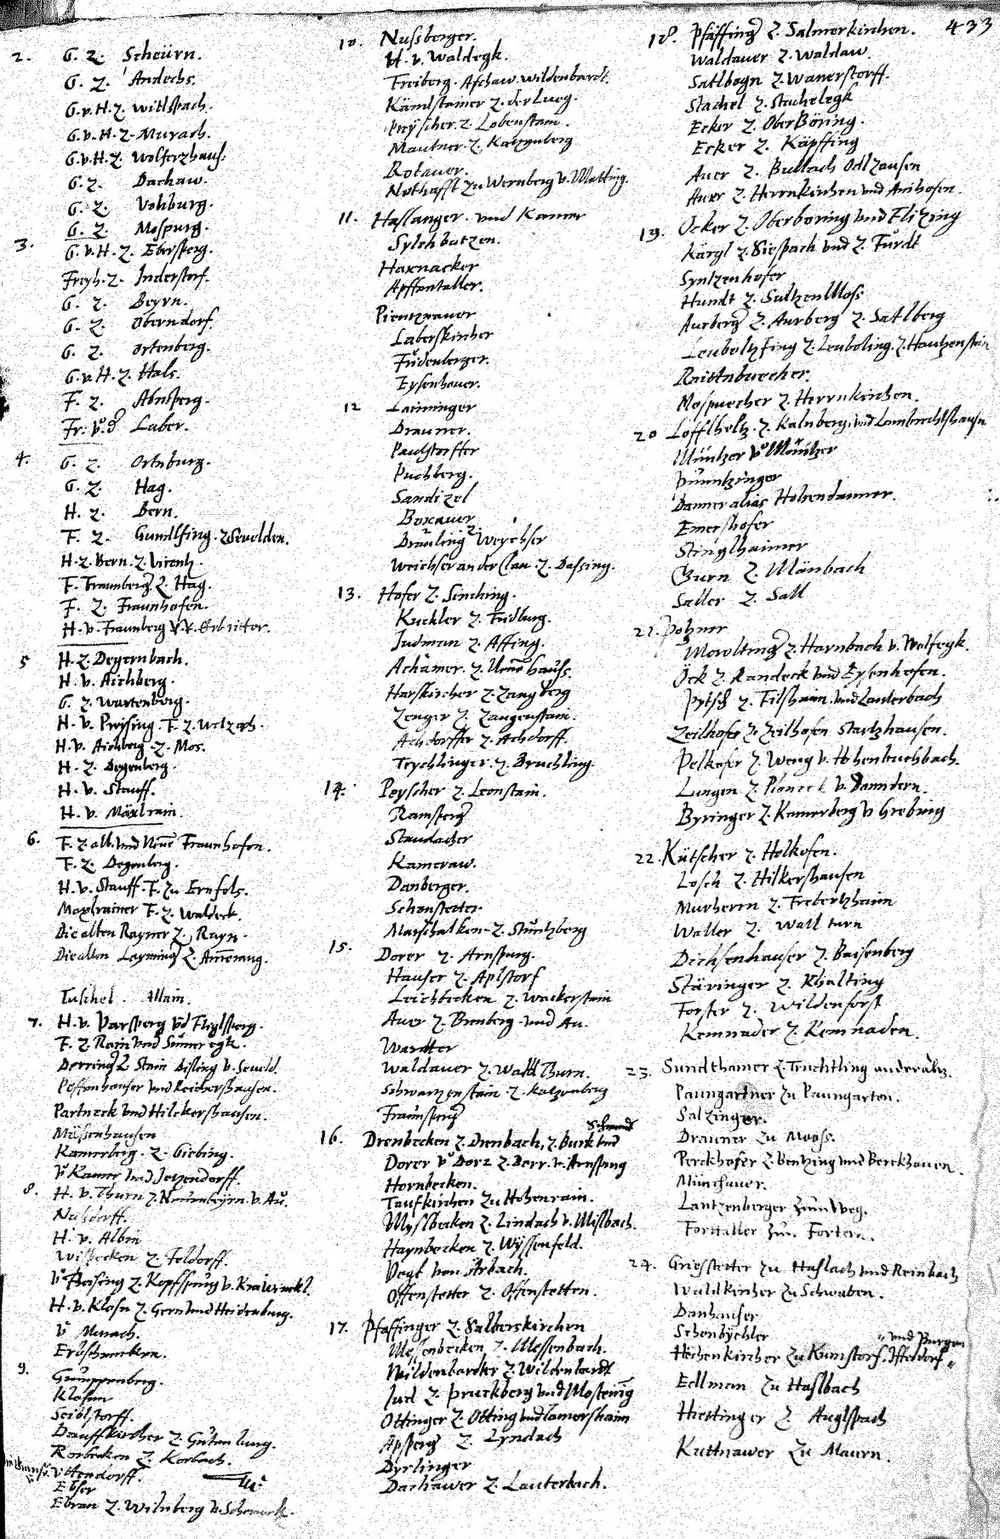 433
2. G. Z. Scheürn.
G. Z. Andechs.
G.v.H.Z. Witlspach.
G.v.H.Z. Murach.
G.v.H.Z. Wolferzhaus.
G. Z. Dachaw.
G. Z. Vohburg.
G. Z. Mospurg.
3. G.v.H.Z. Ebersperg.
Freyh. Z. Inderstorf.
G. Z. Beyrn.
G. Z. Oberndorf.
G. Z. Ortenberg.
G.v.H.Z. Hals.
F. Z. Abnsperg.
Fr. Laber.
4. G. Z. Ortnburg.
G. Z. Hag.
H. Z. Bern.
F. Z. Gundlfing. Z Seveldn.
H.Z. Bern. Z.
F. Fraunberg Z. Hag.
F. Z. Fraunhofen.
H.v. Fraunberg Erbritter.
5 H.Z. Degernbach.
H.v. Aichberg.
G. Z. Wartenberg.
H.v. Preising. F. Z. Wolzach.
H.v. Aichberg. Z. Mos.
H. Z. Degenberg.
H.v. Stauff.
H.v. Maxlrain.
6. F. Z. alt. und Neuē Fraunhofen.
F. Z. Degenberg.
H.v. Stauff. F. Zu Ernfols.
Maxlrainer F. Z. Waldeck.
Die alten Rayner Z. Rayn.
Die alten Layming Z.
Tuschel. Allain.
7. H.v. Parsperg
F. Z. Rain und
Z. Stain
Poffenhauser und Reichershausen.
Partneck und Hilckershausen.
Massenhausen
Kamerberg. Z. Giebing.
Kamer und Jetzendorff.
8. H.v. Thurn Z. v. Au.
Nusdorff.
H.v. Albin
Z. Foldorff.
Preising Z. Kopffspurg v. Krawinckl.
H.v. Klosn Z. Gern und Heidenburg.
Murach.
9. Gumppenberg.
Klosen
Seiblstorff.
Dauffkircher Z. Gutenburg.
Rorbecken Z. Rorbach.
Uttendorff.
Ebser
Ebran Z. Wildnberg
10. Nussberger.
H.v. Waldegk.
Freiberg. Aschaw. Wildenwardt
Kämlstainer Z. der Lueg.
Z. Lobenstain.
Mautner Z. Katznberg
Rotauer.
Nothafft Zu Wernberg v.
11. Haslanger. und Kamer
Sylchbutzen.
Haxnacker
Apffentaller.
Pientznauer
Laberskircher
Frudenberger.
Eysenhouer.
12 Laiminger
Drauner.
Paulstorffer
Puchberg.
Sandizel
Boxauer
Bräuling Z. Weychser
Weichser an der Clan. Z. Dassing.
13. Hofer Z. Sinching.
Kuchler Z. Fridburg.
Judman Z. Affing.
Achamer. Z.
Harskircher Z. Zangberg
Zenger Z. Zangenstain.
Achdorffer Z. Achdorff.
Teychlinger. Z. Bruchling.
14. Poyscher Z. Leonstain.
Ramsperg
Staudacher
Kameraw.
Danberger.
Schonstetter.
Marschalken Z. Stuntzberg
15. Dorer Z. Arnspurg.
Hauser Z. Aplstorf
Leichticken Z. Wackerstain
Auer Z. Brenberg und Au.
Wartter
Waldauer Z. Waltt Thurn.
Schwartzenstain Z. Katzenberg
16. Drenbecken Z. Drenbach, Z. Burk und
Dorer Z. Derr. v. Arnspurg
Hornbecken.
Taufkirchen Zu Hohenrain.
Myslbecken Z. Lindach v. Misbach.
Haynbecken Z. Wyssenfeld.
Vogt von Arbach.
Offenstetter Z. Offenstetten.
17. Pfaffinger Z. Salberskirchen
Messenbecken Z. Messenbach.
Wildenwardter Z. Wildenwardt
Jud Z. Pruckberg und Mostening
Ottinger Z. Otting und Tamershaim
Apsperg Z. Lyndach
Dyrlinger
Dachawer Z. Lauterbach.
18. Pfaffing Z. Salmerkirchen.
Waldauer Z. Waldaw
Satlbogn Z. Wanerstorff.
Stachel Z. Stachelegk
Ecker Z. Ober Böring.
Ecker Z. Käpffing
Auer Z. Bullach Odlzausen
Auer Z. Herrnkirchen und
19. Ecker Z. Oberboring und Elizing
Kärgl Z. Siespach und Z. Furdt
Syntzenhofer
Hundt Z. Sultzenmoss
Aurberg Z. Aurberg Z. Satlberg
Leuboltzfing Z. Leubolfing. Z. Hautzenstain
Raittnbuecher.
Mospurcher Z. Herrnkirchen.
20 Löfflholtz Z. Kalnberg, und
Müntzer
Danner alias Hohendanner.
Emershofer
Stinglhaimer
Z. Mänbach
Saller Z. Sall
21. Potzner
Z. Harnbach v. Wolfegk.
Öck Z. Randeck und Eysenhofen.
Z. Filshaim, und Lauterbach
Zeilhofer Z. Zeilhofen Startzhausen.
Pelkofer Z. Weng v. Hohenbuchbach.
Lungen Z. Planeck v. Danndern.
Byringer Z. Kamerberg v. Grebing
22. Kütscher Z. Helkofen.
Losch Z. Hilkershausen
Murherrn Z. Freberzhaim
Waller Z. Walltturn
Dichsenhauser Z. Baisenberg
Stäringer Z. Khalting
Forster Z. Wildenforst
Kemnader Z. Kemnaden.
23. Sundthamer Z. Truchtling
Paumgartner Zu Paumgarten.
Salzinger.
Drauner Zu Mooss.
Perckhofer Z. Bentzing und Berckhausen.
Münchauer.
Lantzenberger Zum Weg.
Fortaller Zun Fortern.
24. Griesstetter Zu Haslach und Reinbach
Waldkircher Zu Schwaben.
Danhauser
Schönbychler
Hechenkircher Zu Kunstorf, Iffeldorf, und Burgen
Edlman Zu Haslbach
Hiettinger Z. Auglspach
Kuttnawer Zu Maurn.